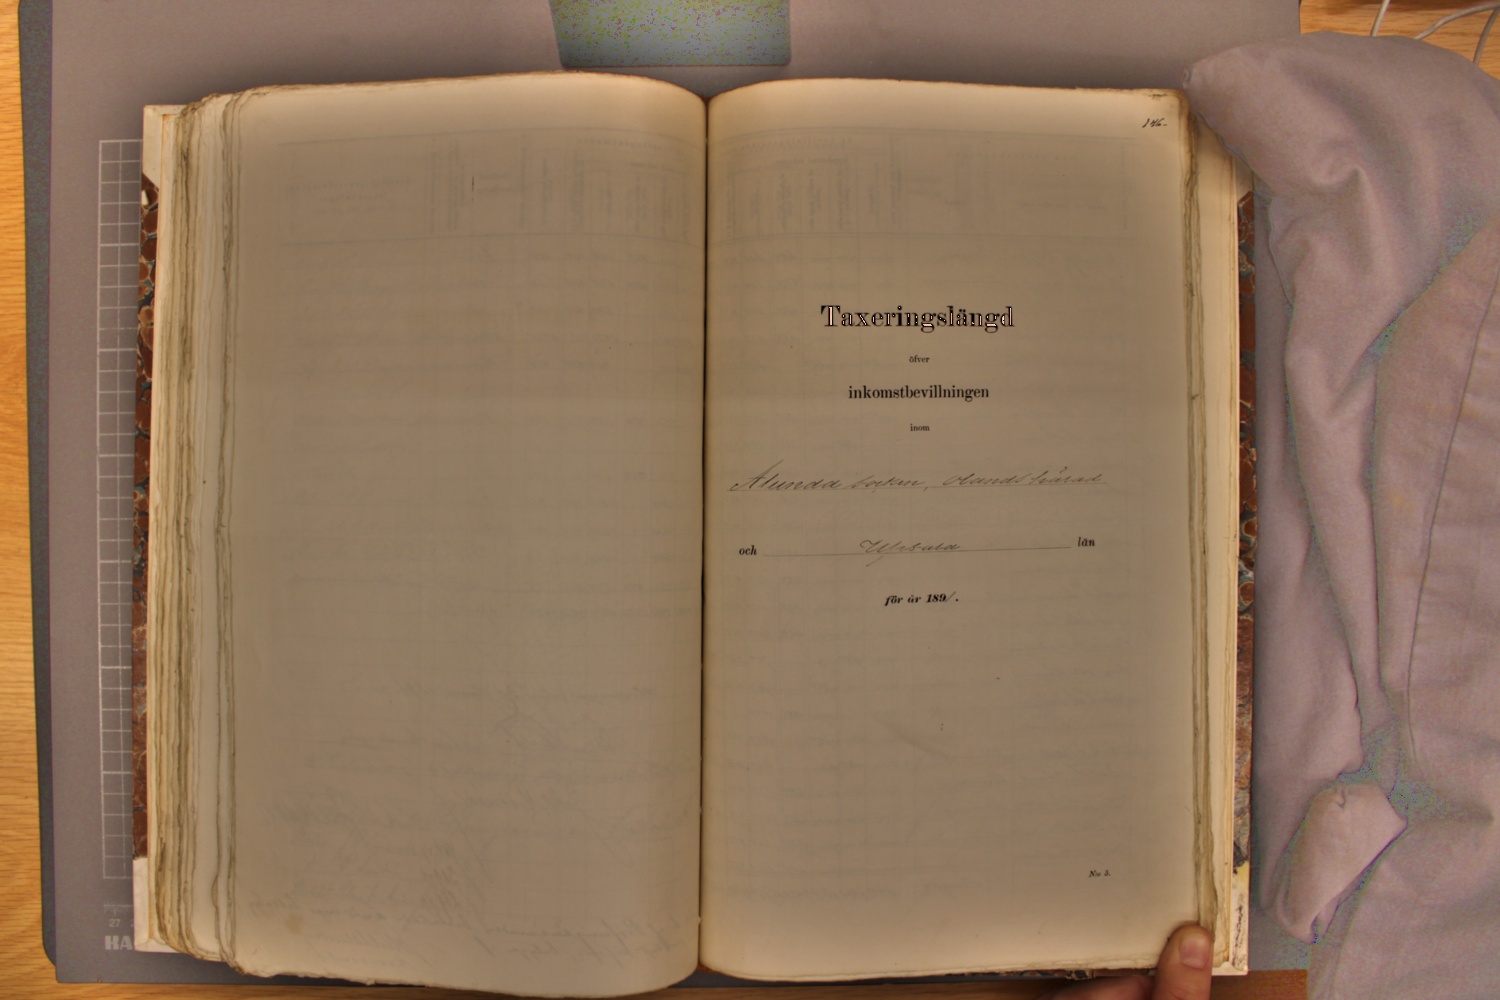 146.
Taxeringslängd
öfver
inkomstbevillningen
inom
Alunda socken, Olands härad
och Upsala län
för år 1891.
No 5.
27
HA